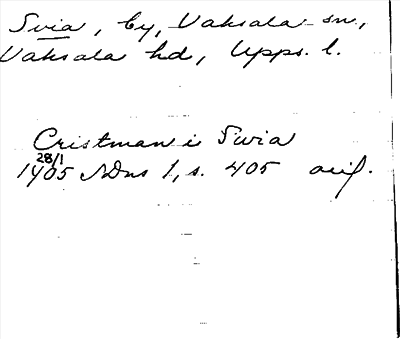 Svia, by, Vaksala sn.,
Vaksala hd, Upps. l.
Cristman i Swia
28/1
1405 SDns 1, s. 405 avjf.